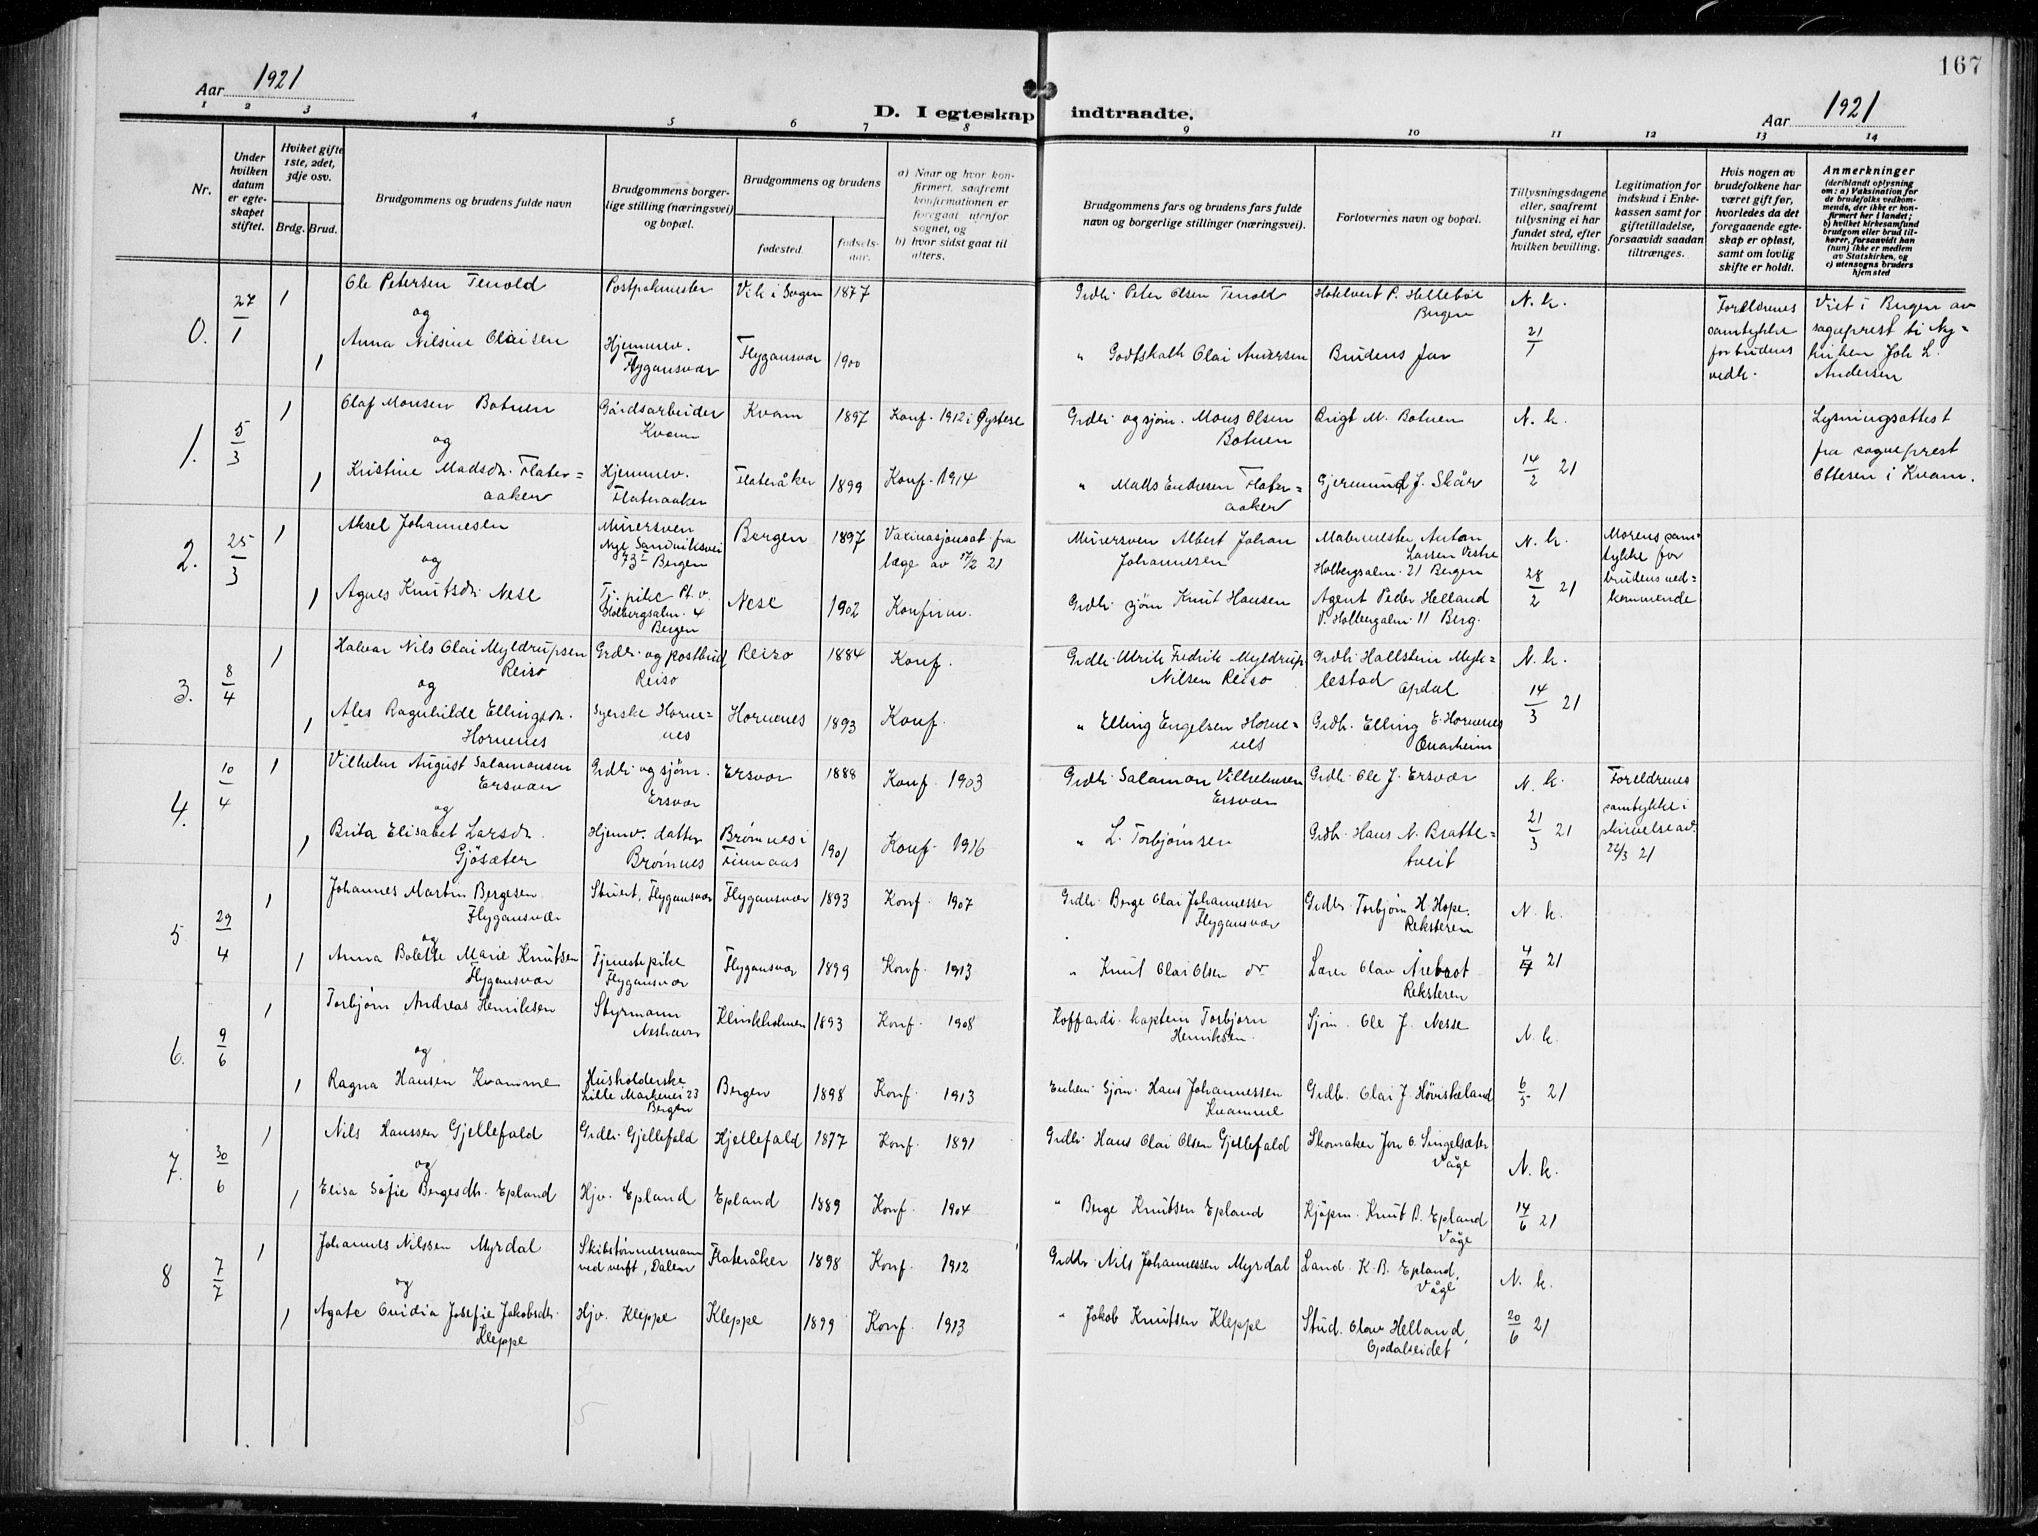 167
Aar 1921
D. I egteskap indtraadte.
Aar 1921
1 2 3 4 5 6 7 8 9 10 11 12 13 14
Nr.
Under hvilken datum er egteskapet stiftet.
Hviket gifte 1ste, 2det, 3dje osv.
Brdg. Brud.
Brudgommens og brudens fulde navn
Brudgommens borgerlige stilling (næringsvei) og bopæl.
Brudgommens og brudens
fødested. fødselsaar.
a) Naar og hvor konfirmert, saafremt konfirmationen er foregaat utenfor sognet, og
b) hvor sidst gaat til alters.
Brudgommens fars og brudens fars fulde navn og borgerlige stillinger (næringsvei).
Forlovernes navn og bopæl.
Tillysningsdagene eller, saafremt tillysning ei har fundet sted, efter hvilken bevilling.
Legitimation for indskud i Enkekassen samt for giftetilladelse, forsaavidt saadan tiltrænges.
Hvis nogen av brudefolkene har været gift før, hvorledes da det foregaaende egteskap er opløst, samt om lovlig skifte er holdt.
Anmerkninger
(deriblandt oplysning om: a) Vaksination for de brudefolks vedkommende, der ikke er konfirmert her i landet; b) hvilket kirkesamfund brudgom eller brud tilhører, forsaavidt han (hun) ikke er medlem av Statskirken, og c) utensogns bruders hjemsted
0. 27/1 1 Ole Petersen Tenold Postpakmester Vik i Sogn 1877 Grdbr. Peter Olsen Tenold Hohlvert P. Hellebøe Bergen N. k. Foreldrenes samtykke for brudens vedk. Viet i Bergen av sogneprest ti Nykirken Joh L. Andersen
og
1 Anna Nilsine Olaisen Hjemmev. Flygansvær Flygansvær 1900 " Godtskalk Olai Andersen Brudens far 21/1
1. 5/3 1 Olaf Monsen Botnen Gårdsarbeider Kvam Kvam 1897 Konf. 1912 i Øystese Grdbr og sjøm. Mons Olsen Botnen Brigt M. Botnen N. k. Lysningsattest fra sogneprest Ottesen i Kvam.
og
1 Kristine Madsdr. Flateraaker Hjemmev. Flateraaker Flateråker 1899 Konf. 1914 " Mads Endresen Flateraaker Gjermund J. Skår 14/2 21
2. 25/3 1 Aksel Johannesen Murersven Nye Sandviksvei 73 Bergen Bergen 1897 Vaxinasjonsat. fra læge av 17/2 21 Murersven Albert Johan Johannesen Malermester Anton Larsen Vestre Holbergsalm. 21 Bergen N. k. Morens samtykke for brudens vedkommende
og
1 Agnes Knutsdr. Nese Tj. pike Pt. v. Holbergsalm. 4 Bergen Nese 1902 Konfirm. Grdbr. sjøm Knut Hansen Agent Peder Helland V. Holbergalm. 11 Berg. 28/2 21
3. 8/4 1 Halvar Nils Olai Myldrupsen Reisø Grdbr. og postbud Reisø Reisø 1884 Konf. Grdbr. Ulrik Fredrik Myldrup Nilsen Reisø Grdbr. Hallstein Myklestad Opdal N. k.
og
1 Ales Ragnhilde Ellingsdr. Hornenes Syerske Hornenes Hornenes 1893 Konf. " Elling Engelsen Hornenes Grdb. Elling E. Hornenes 14/3 21
4. 10/4 1 Vilhelm August Salamonsen Ersvær Grdbr og sjøm. Ersvær Ersvær 1888 Konf. 1903 Grdbr. Salamon Vilhelmsen Ersvær Grdbr. Ole J. Ersvær N. k. Foreldrenes samtykke i skrivelse av 22/3 21
og
1 Brita Elisabet Larsdr. Gjøsæter Hjemv. datter Brømnes Brømnes i Finnaas 1901 Konf. 1916 " L. Torbjørnsen Grdbr. Hans N. Brattetveit 21/3 21
5 29/4 1 Johannes Martin Bergesen Flygansvær Stuert, Flygansvær Flygansvær 1893 Konf. 1907 Grdbr. Berge Olai Johannessen Flygansvær Grdbr. Torbjørn H. Hope. Reksteren N. k.
og
1 Anna Bolette Marie Knutsen Flygansvær Tjenestepike Flygansvær Flygansvær 1899 Konf. 1913 " Knut Olai Olsen Lærer Olav Årebrot Reksteren 4/4 21
6. 9/6 1 Torbjørn Andreas Henriksen Styrmann Neshavn Klinkholmen 1893 Konf. 1908 Koffardi. kaptein Torbjørn Henriksen. Sjøm. Ole J. Nesse N. k.
og
1 Ragna Hansen Kvamme Husholderske Lille Markevei 23 Bergen Bergen 1898 Konf. 1913 Enkem. Sjøm. Hans Johannessen Kvamme Grdb. Olai J. Høviskeland 6/5 21
7. 30/6 1 Nils Hanssen Gjellefald Grdbr. Gjellefald Hjellefald 1877 Konf. 1891 Grdbr. Hans Olai Olsen Gjellefald Skomaker Jon O. Singelsæter Våge N. k.
og
1 Elisa Sofie Bergesdtr. Epland Hjv. Epland Epland 1889 Konf. 1904 " Berge Knutsen Epland Kjøpm. Knut B. Epland Våge 14/6 21
8 7/7 1 Johannes Nilssen Myrdal Skibstømmermann ved verft, Dalen Flateråker 1898 Konf. 1912 Grdbr. Nils Johannessen Myrdal Land. K. B. Epland, Våge N. k.
og
1 Agate Ovidia Josefie Jakobsdtr. Kleppe Hjv. Kleppe Kleppe 1899 Konf. 1913 " Jakob Knutsen Kleppe Stud. Olav Helland, Opdalseidet 20/6 21